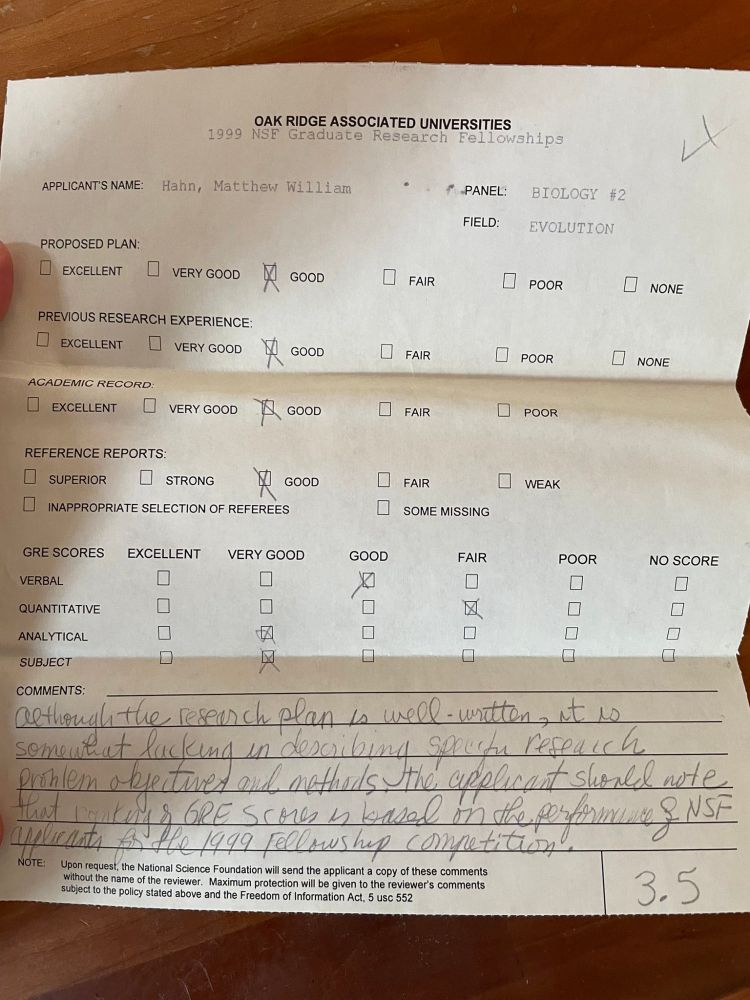 OAK RIDGE ASSOCIATED UNIVERSITIES
1999 NSF Graduate Research Fellowships
APPLICANT'S NAME: Hahn, Matthew William PANEL: BIOLOGY #2
FIELD: EVOLUTION
PROPOSED PLAN:
EXCELLENT VERY GOOD GOOD FAIR POOR NONE
PREVIOUS RESEARCH EXPERIENCE:
EXCELLENT VERY GOOD GOOD FAIR POOR NONE
ACADEMIC RECORD:
EXCELLENT VERY GOOD GOOD FAIR POOR
REFERENCE REPORTS:
SUPERIOR STRONG GOOD FAIR WEAK
INAPPROPRIATE SELECTION OF REFEREES SOME MISSING
GRE SCORES EXCELLENT VERY GOOD GOOD FAIR POOR NO SCORE
VERBAL
QUANTITATIVE
ANALYTICAL
SUBJECT
COMMENTS:
although the research plan is well-written, it is
somewhat lacking in describing specific research
problem objectives and methods. the applicant should note
that ranking of GRE scores is based on the performance of NSF
applicants for the 1999 Fellowship competition.
NOTE: Upon request, the National Science Foundation will send the applicant a copy of these comments
without the name of the reviewer. Maximum protection will be given to the reviewer's comments
subject to the policy stated above and the Freedom of Information Act, 5 usc 552
3.5